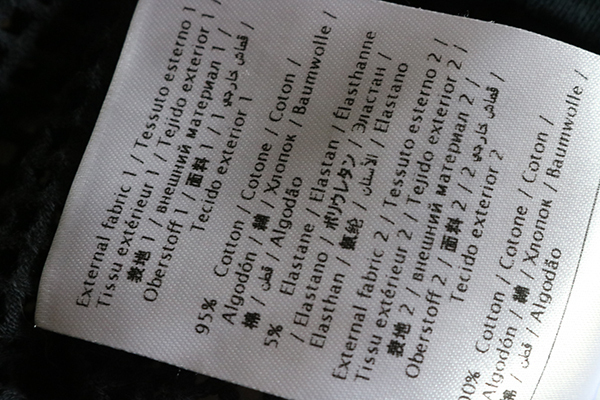 External fabric 1 / Tessuto esterno 1
Tissu extérieur 1 / Tejido exterior 1 /
表地 1 / внешний материал 1 /
Oberstoff 1 / 面料 1 / 1 قماش خارجي /
Tecido exterior 1
95% Cotton / Cotone / Coton /
Algodón / 綿 / Хлопок / Baumwolle /
棉 / قطن / Algodão
5% Elastane / Elastan / Élasthanne
/ Elastano / ポリウレタン / Эластан /
Elasthan / 氨纶 / الأستان / Elastano
External fabric 2 / Tessuto esterno 2 /
Tissu extérieur 2 / Tejido exterior 2 /
表地 2 / внешний материал 2 /
Oberstoff 2 / 面料 2 / 2 قماش خارجي /
Tecido exterior 2
00% Cotton / Cotone / Coton /
Algodón / 綿 / Хлопок / Baumwolle /
棉 / قطن / Algodão